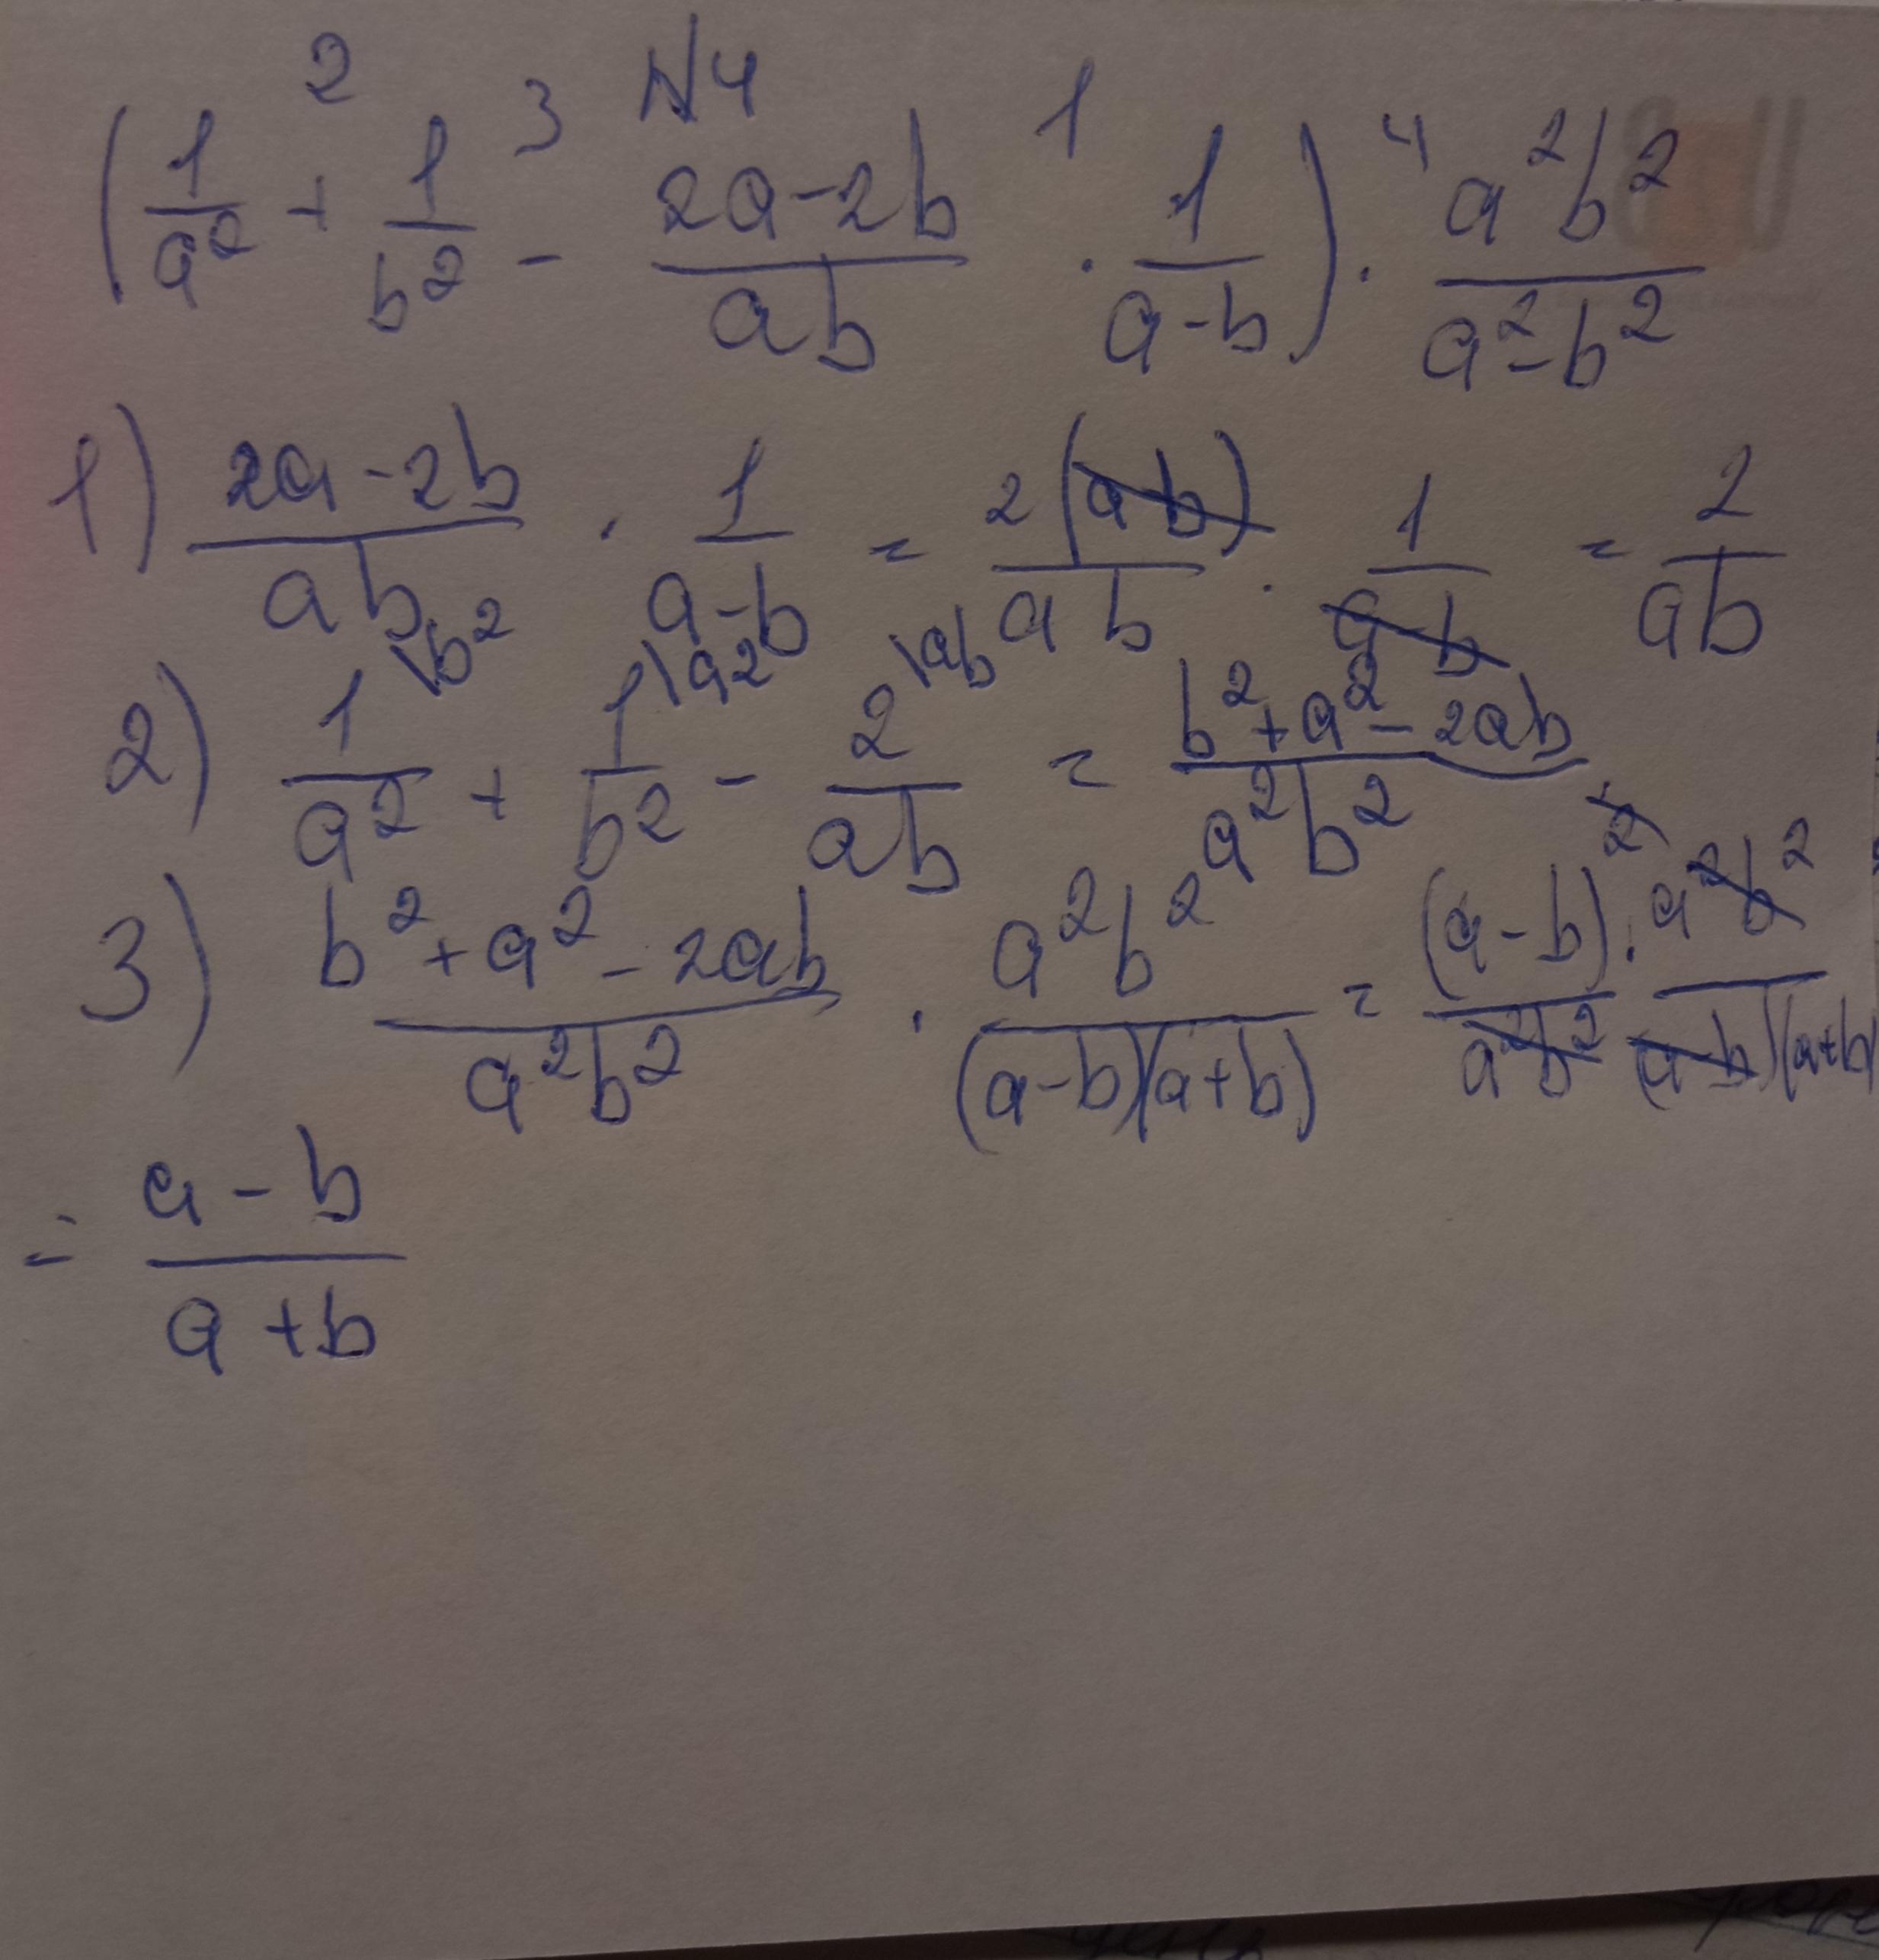 N4
(1/a² + 1/b² - (2a-2b)/(ab) · 1/(a-b)) · a²b²/(a²-b²)
2 3 1 4
1) (2a-2b)/(ab) · 1/(a-b) = 2(a-b)/(ab) · 1/(a-b) = 2/(ab)
2) 1\b²/a² + 1\a²/b² - 2\ab/(ab) = (b²+a²-2ab)/(a²b²)
3) (b²+a²-2ab)/(a²b²) · a²b²/((a-b)(a+b)) = (a-b)²/(a²b²) · a²b²/((a-b)(a+b))
= (a-b)/(a+b)